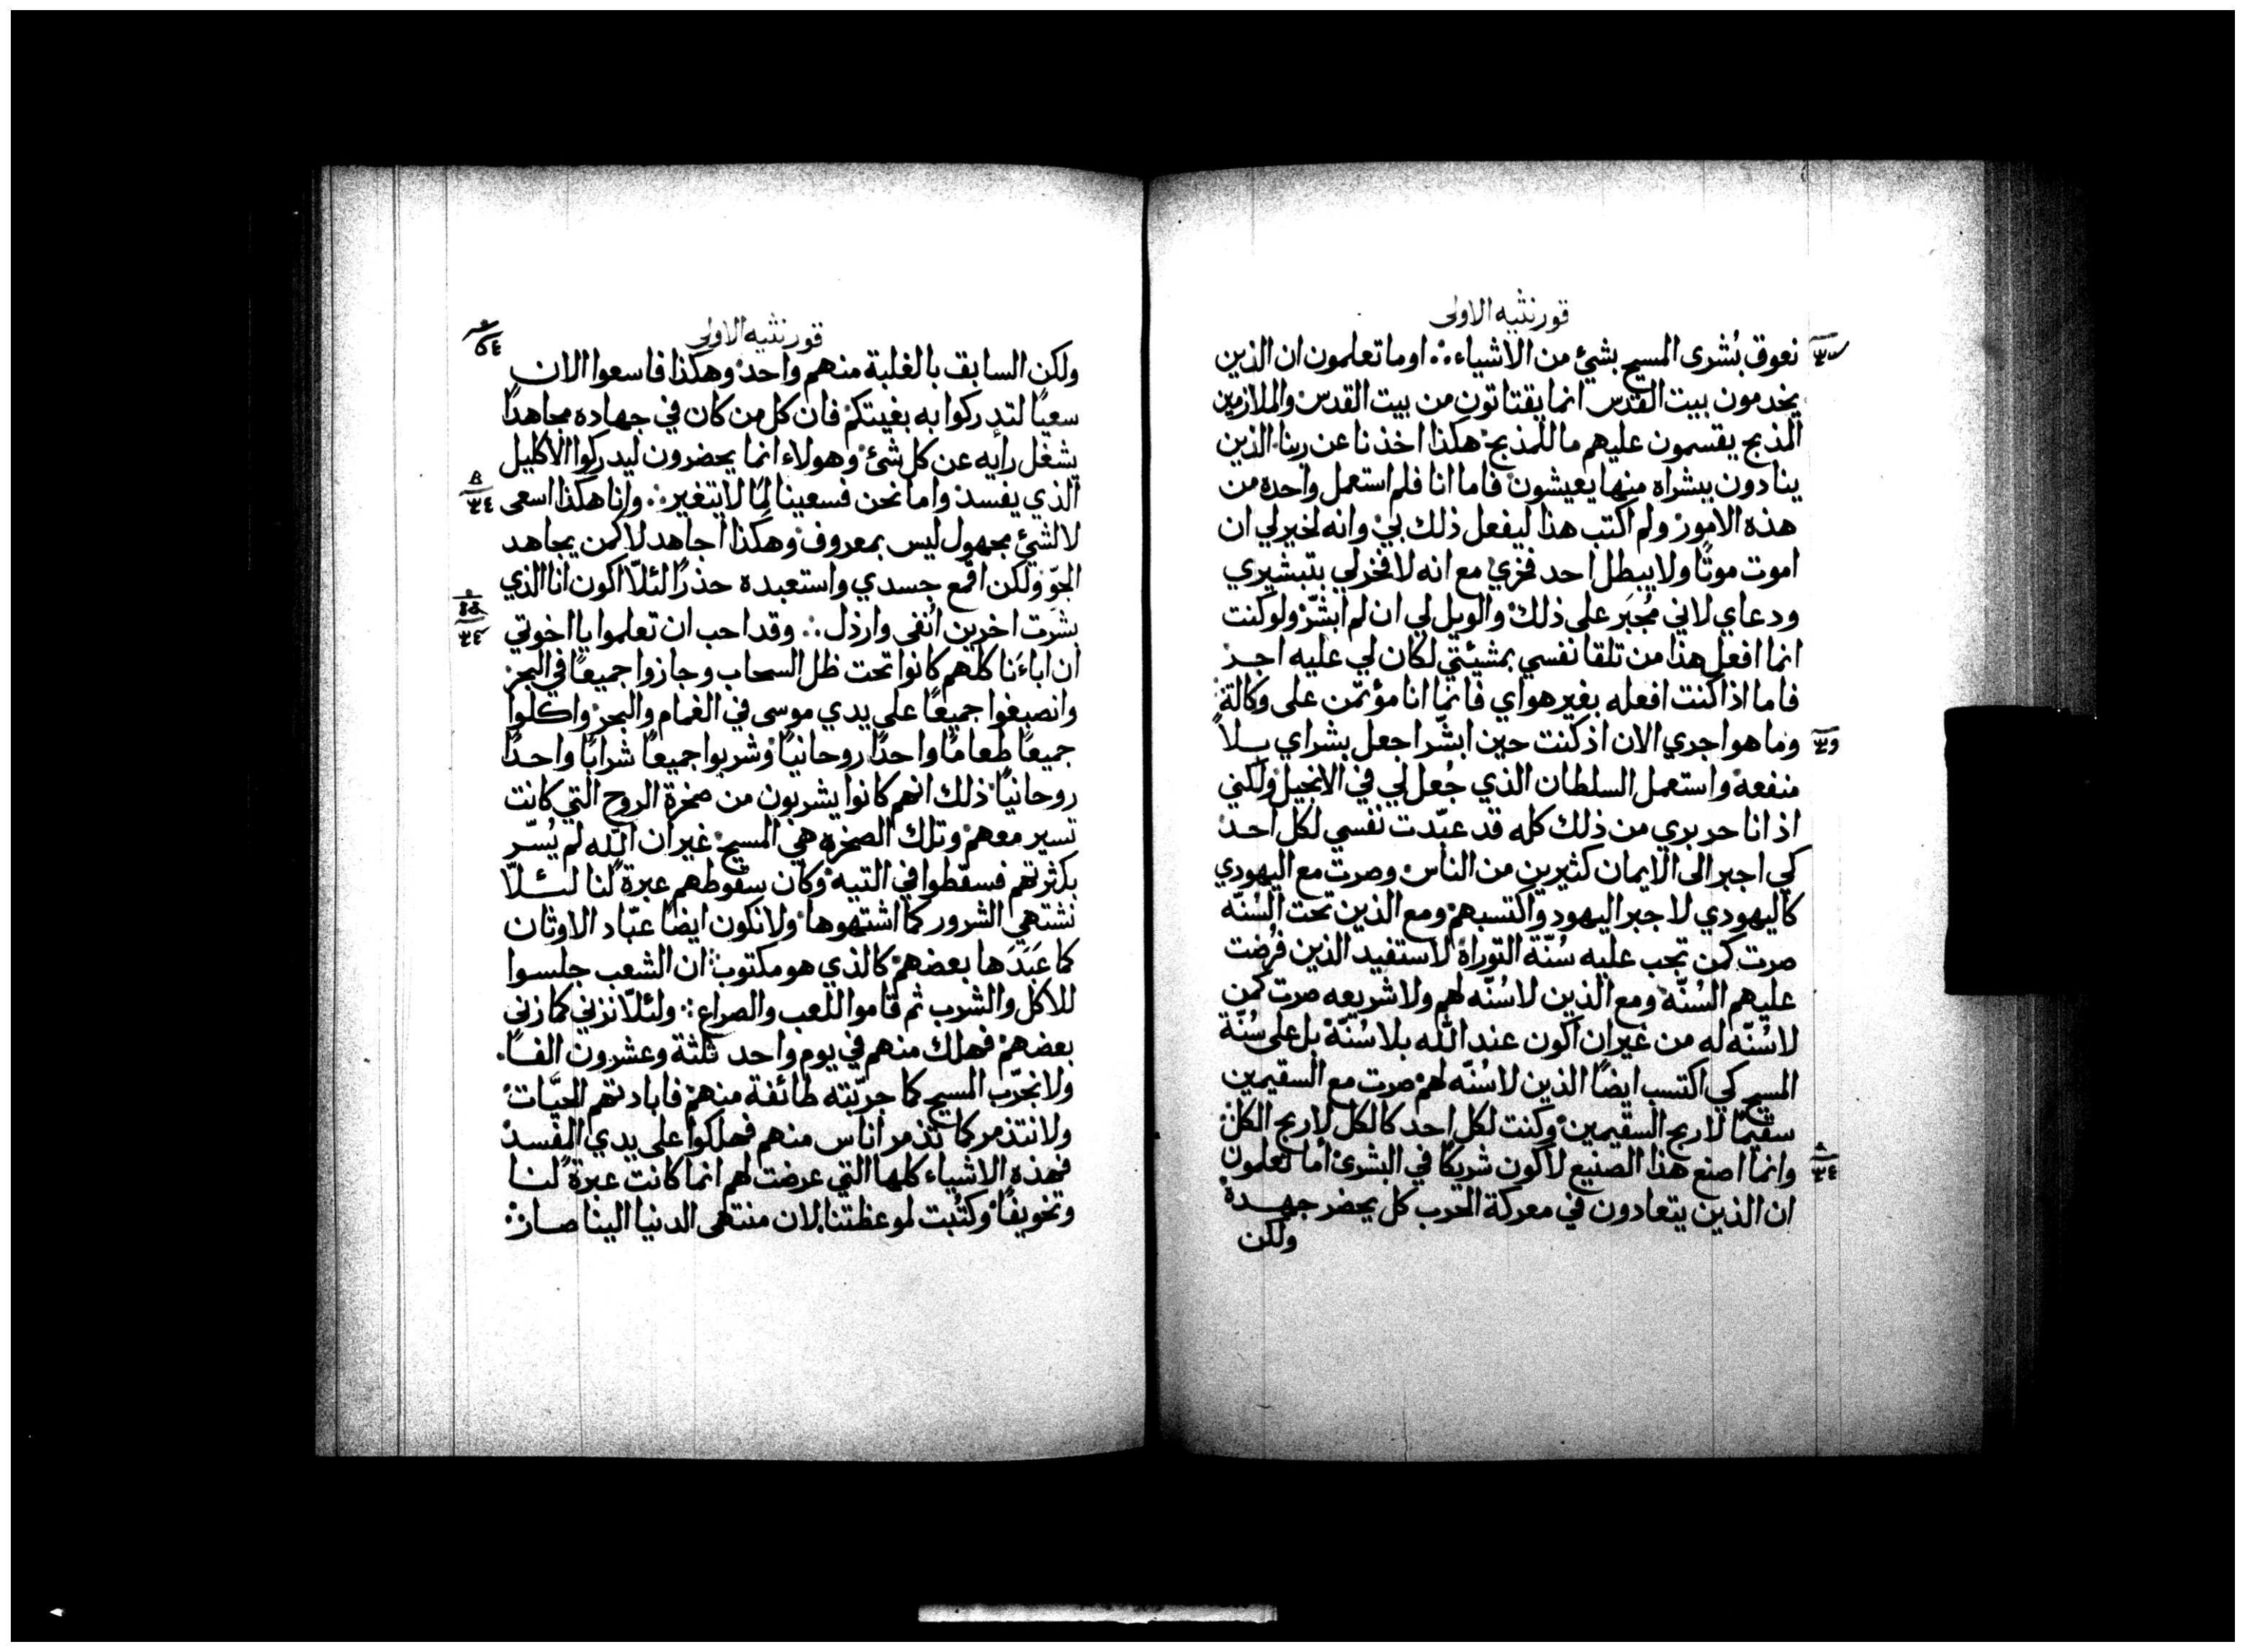 قورنثيه الاولى
نعوق بُشرى المسيح بشيء من الاشياء ؞ اوما تعلمون ان الذين
يخدمون بيت القدس انما يقتاتون من بيت القدس والملازمين
المذبح يقسمون عليهم ما للمذبح هكذا اخذنا عن ربنا الذين
ينادون ببشراه منها يعيشون فاما انا فلم استعمل واحده من
هذه الامور ولم اكتب هذا ليفعل ذلك بي وانه لخير لي ان
اموت موتًا ولا يبطل احد فخري مع انه لا فخر لي بتبشيري
ودعاي لاني مُجبَر على ذلك والويل لي ان لم ابشّر ولو كنت
انما افعل هذا من تلقا نفسي بمشيئتي لكان لي عليه اجر
فاما اذا كنت افعله بغير هواي فانما انا مؤتمن على وكالة
وما هو اجري الان اذ كنت حين ابشّر اجعل بشراي بلا
منفعه واستعمل السلطان الذي جُعل لي في الانجيل ولكني
اذ انا حر بري من ذلك كله قد عبّدت نفسي لكل احد
كي اجبر الى الايمان كثيرين من الناس وصرت مع اليهودي
كاليهودي لاجبر اليهود واكتسبهم ومع الذين تحت السُنّه
صرت كمن تجب عليه سُنّة التوراة لاستفيد الذين فُرضت
عليهم السُنّه ومع الذين لا سُنّه لهم ولا شريعه صرت كمن
لا سُنّه له من غير ان اكون عند الله بلا سُنّة بل على سُنّة
المسيح كي اكتسب ايضًا الذين لا سُنّه لهم صرت مع السقيمين
سقيمًا لاربح السقيمين وكنت لكل احد كالكل لاربح الكل
وانما اصنع هذا الصنيع لاكون شريكًا في البشرى أما تعلمون
ان الذين يتعادون في معركة الحرب كل يحضر جهده
ولكن
قورنثيه الاولى
ولكن السابق بالغلبة منهم واحد وهكذا فاسعوا الان
سعيًا لتدركوا به بغيتكم فان كل من كان في جهاده مجاهدًا
يشغل رأيه عن كل شئ وهولاء انما يحضرون ليدركوا الاكليل
الذي يفسد واما نحن فسعينا لمِا لا يتغير ؞ وانا هكذا اسعى
لا لشيءٍ مجهول ليس بمعروف وهكذا اجاهد لا كمن يجاهد
الجوّ ولكن اقمع جسدي واستعبده حذرًا لئلّا اكون انا الذي
بشرت اخرين اُنفى وارذل ؞ وقد احب ان تعلموا يا اخوتي
ان اباءَنا كلهم كانوا تحت ظل السحاب وجازوا جميعًا في البحر
وانصبغوا جميعًا على يدي موسى في الغمام والبحر واكلوا
جميعًا طعامًا واحدًا روحانيًا وشربوا جميعًا شرابًا واحدًا
روحانيًا ذلك انهم كانوا يشربون من صخرة الروح التي كانت
تسير معهم وتلك الصخره هي المسيح غير ان الله لم يُسّر
بكثرتهم فسقطوا في التيه وكان سقوطهم عبرةً لنا لئلّا
نشتهي الشرور كما اشتهوها ولا نكون ايضًا عبّاد الاوثان
كما عَبَدَها بعضهم كالذي هو مكتوب ان الشعب جلسوا
للاكل والشرب ثم قاموا اللعب والصراع ؞ ولئلّا نزني كما زنى
بعضهم فهلك منهم في يوم واحد ثلثة وعشرون الفًا
ولا نجرّب المسيح كما جرّبته طائفة منهم فابادتهم الحيَّات
ولا نتذمر كما تذمر اناس منهم فهلكوا على يدي المفسد
فهذه الاشياء كلها التي عرضت لهم انما كانت عبرةً لنا
وتخويفًا وكتُبت لموعظتنا لان منتهى الدنيا الينا صار